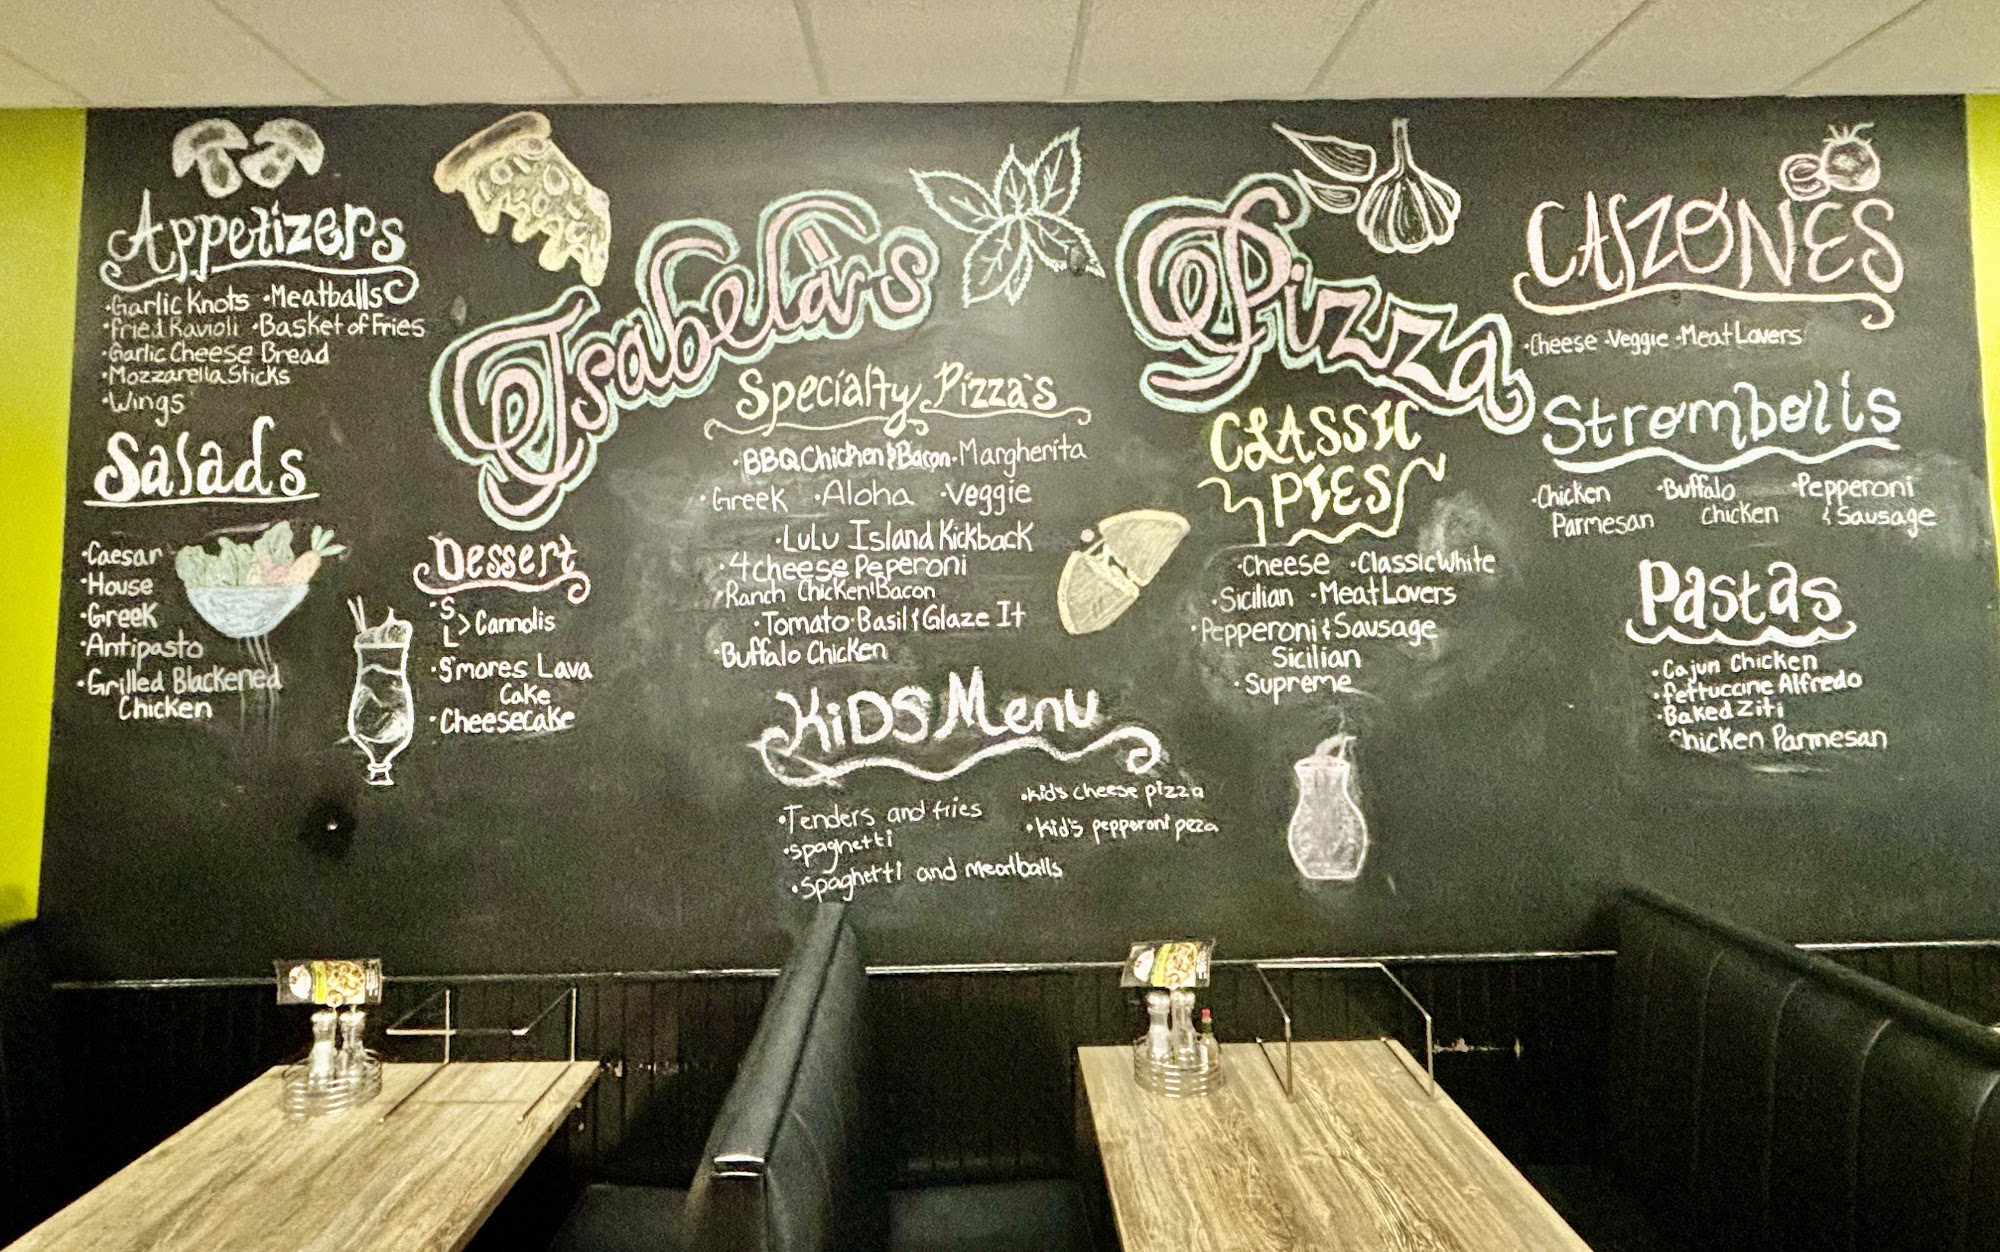 Appetizers
·Garlic Knots ·Meatballs
·Fried Ravioli ·Basket of Fries
·Garlic Cheese Bread
·Mozzarella Sticks
·Wings
Salads
·Caesar
·House
·Greek
·Antipasto
·Grilled Blackened
Chicken
Dessert
·S
L > Cannolis
·S'mores Lava
Cake
·Cheesecake
Isabela's Pizza
Specialty Pizza's
·BBQ Chicken & Bacon ·Margherita
·Greek ·Aloha ·Veggie
·LuLu Island Kickback
·4 cheese Peperoni
Ranch Chicken Bacon
·Tomato Basil & Glaze It
·Buffalo Chicken
KiDS Menu
·Tenders and fries
·spaghetti
·Spaghetti and meatballs
·kid's cheese pizza
·kid's pepperoni pizza
CLASSIC
PIES
·Cheese ·Classic White
·Sicilian ·Meat Lovers
·Pepperoni & Sausage
Sicilian
·Supreme
CALZONES
·Cheese ·Veggie ·Meat Lovers
Strombolis
·Chicken
Parmesan
·Buffalo
Chicken
·Pepperoni
& Sausage
Pastas
·Cajun Chicken
·Fettuccine Alfredo
·Baked Ziti
·Chicken Parmesan